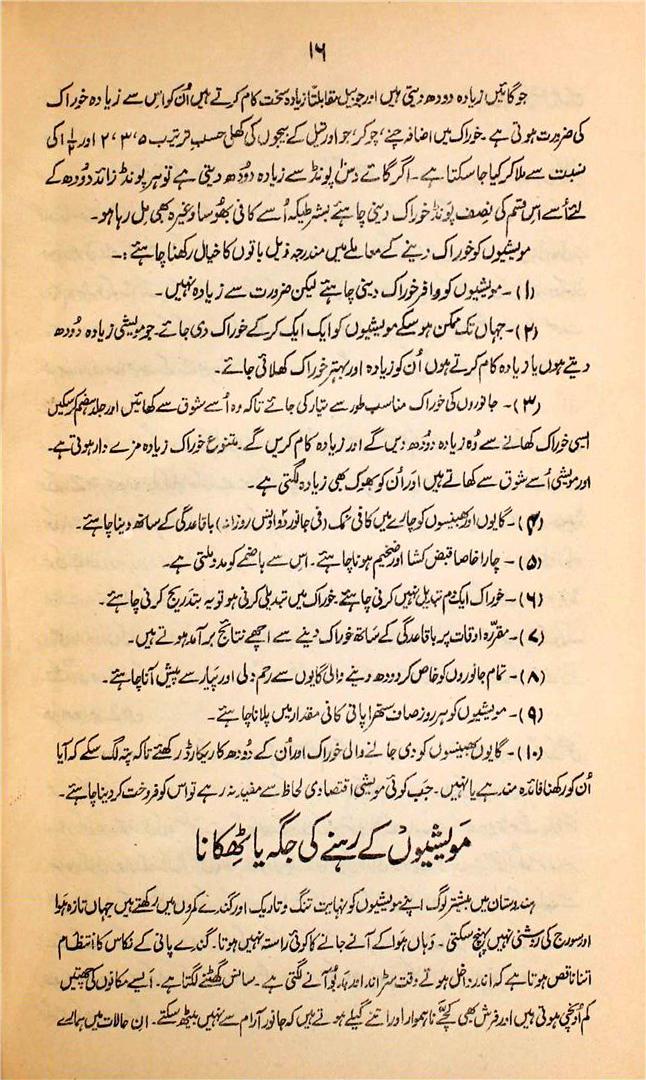 ۱۶
جو گائیں زیادہ دودھ دیتی ہیں اور جو بیل مقابلتاً زیادہ سخت کام کرتے ہیں اُن کو اس سے زیادہ خوراک
کی ضرورت ہوتی ہے۔ خوراک میں اضافہ چنے، چوکر، جو اور تیل کے بیجوں کی کھلی حسب ترتیب ۵، ۳، ۲ اور ½۱ کی
نسبت سے ملا کر کیا جا سکتا ہے۔ اگر گائے دس پونڈ سے زیادہ دُودھ دیتی ہے تو ہر پونڈ زائد دُودھ کے
لئے اُسے اس قسم کی نصف پونڈ خوراک دینی چاہئے بشرطیکہ اُسے کافی بھُوسا وغیرہ بھی مل رہا ہو۔
مویشیوں کو خوراک دینے کے معاملے میں مندرجہ ذیل باتوں کا خیال رکھنا چاہئے:۔
(۱)۔ مویشیوں کو وافر خوراک دینی چاہئے لیکن ضرورت سے زیادہ نہیں۔
(۲)۔ جہاں تک ممکن ہو سکے مویشیوں کو ایک ایک کر کے خوراک دی جائے۔ جو مویشی زیادہ دُودھ
دیتے ہوں یا زیادہ کام کرتے ہوں اُن کو زیادہ اور بہتر خوراک کھلائی جائے۔
(۳)۔ جانوروں کی خوراک مناسب طور سے تیار کی جائے تاکہ وہ اُسے شوق سے کھائیں اور جلد ہضم کر سکیں
ایسی خوراک کھانے سے وُہ زیادہ دودھ دیں گے اور زیادہ کام کریں گے۔ متنوع خوراک زیادہ مزے دار ہوتی ہے۔
اور مویشی اُسے شوق سے کھاتے ہیں اور اُن کو بھوک بھی زیادہ لگتی ہے۔
(۴)۔ گایوں اور بھینسوں کو چارے میں کافی نمک (فی جانور ۲ اونس روزانہ) باقاعدگی کے ساتھ دینا چاہئے۔
(۵)۔ چارا خاصا قبض کشا اور ضخیم ہونا چاہئے۔ اس سے ہاضمے کو مدد ملتی ہے۔
(۶)۔ خوراک ایک دم تبدیل نہیں کرنی چاہئے۔ خوراک میں تبدیلی کرنی ہو تو یہ بتدریج کرنی چاہئے۔
(۷)۔ مقررہ اوقات پر باقاعدگی کے ساتھ خوراک دینے سے اچھے نتائج برآمد ہوتے ہیں۔
(۸)۔ تمام جانوروں کو خاص کر دودھ دینے والی گایوں سے رحم دلی اور پیار سے پیش آنا چاہئے۔
(۹)۔ مویشیوں کو ہر روز صاف ستھرا پانی کافی مقدار میں پلانا چاہئے۔
(۱۰)۔ گایوں بھینسوں کو دی جانے والی خوراک اور اُن کے دُودھ کا ریکارڈ رکھئے تاکہ پتہ لگ سکے کہ آیا
اُن کو رکھنا فائدہ مند ہے یا نہیں۔ جب کوئی مویشی اقتصادی لحاظ سے مفید نہ رہے تو اس کو فروخت کر دینا چاہئے۔
مَویشیوں کے رہنے کی جگہ یا ٹھکانا
ہندوستان میں بیشتر لوگ اپنے مویشیوں کو نہایت تنگ و تاریک اور گندے کمروں میں رکھتے ہیں جہاں تازہ ہوا
اور سورج کی روشنی نہیں پہنچ سکتی۔ وہاں ہوا کے آنے جانے کا کوئی راستہ نہیں ہوتا۔ گندے پانی کے نکاس کا انتظام
اتنا ناقص ہوتا ہے کہ اندر داخل ہوتے وقت سڑاند اور بدبُو آنے لگتی ہے۔ سانس گھٹنے لگتا ہے۔ ایسے مکانوں کی چھتیں
کم اُونچی ہوتی ہیں اور فرش بھی کچے ناہموار اور اتنے گیلے ہوتے ہیں کہ جانور آرام سے نہیں بیٹھ سکتے۔ ان حالات میں ہمارے